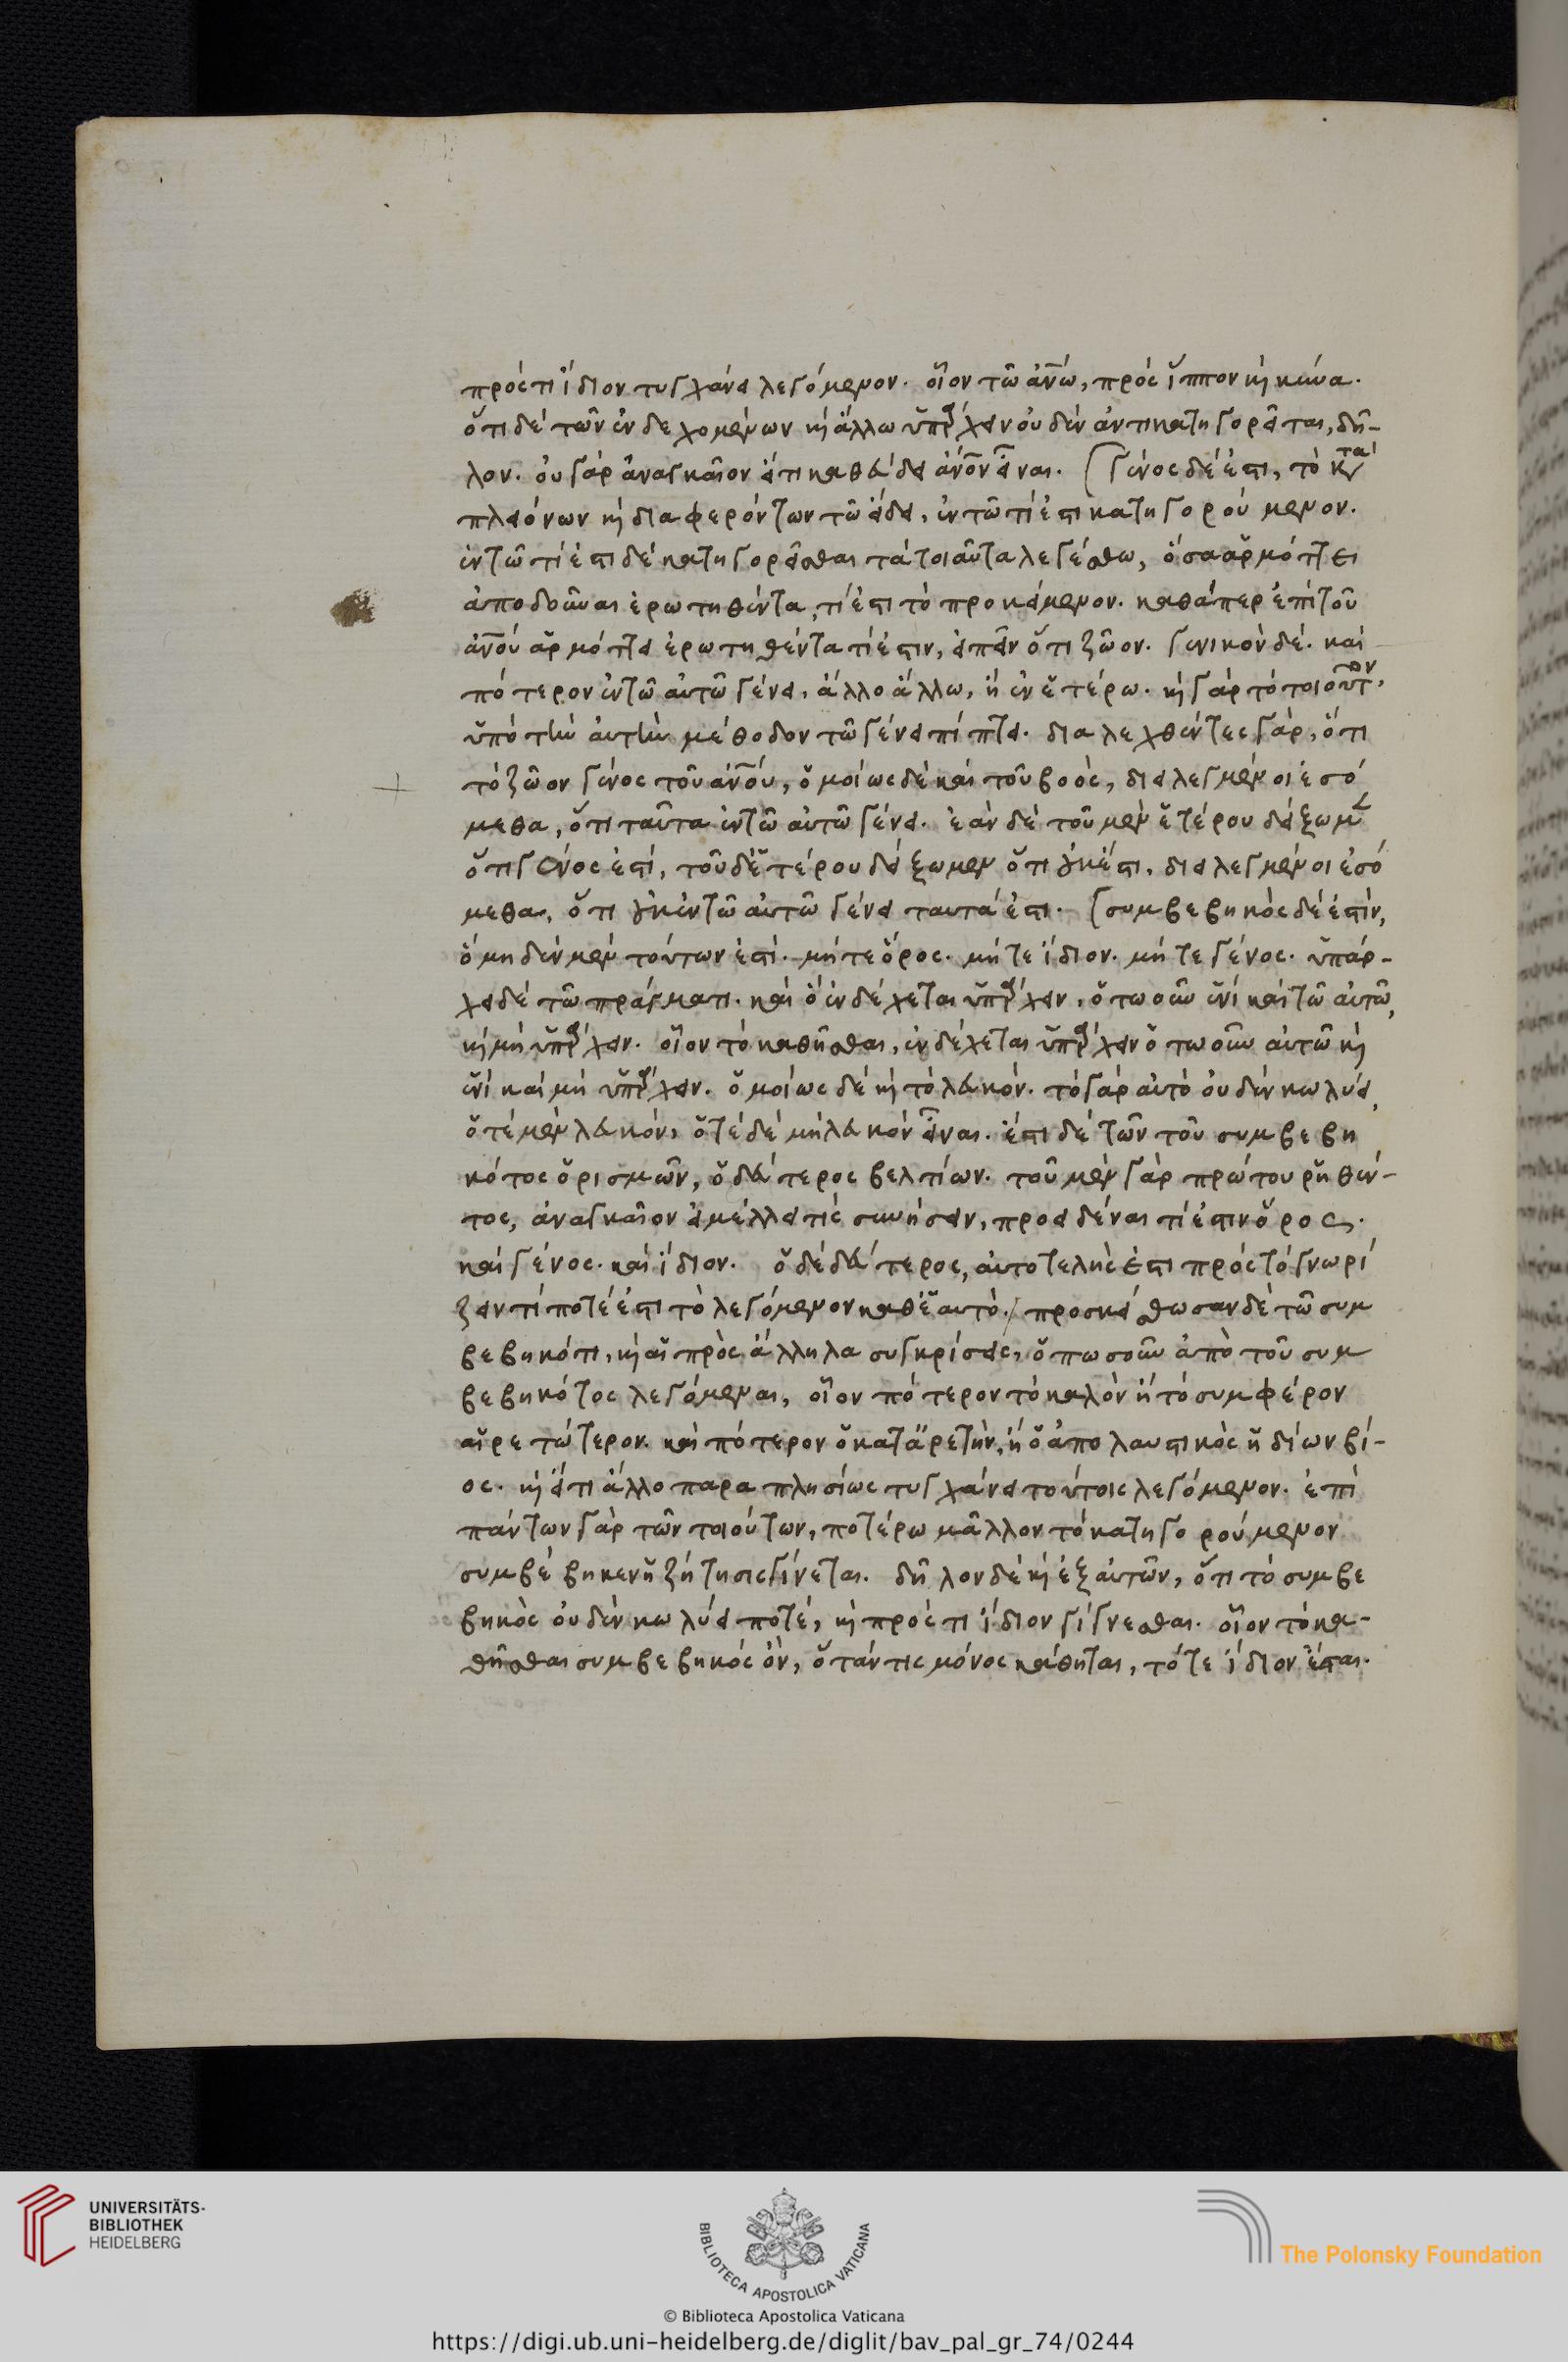 πρός τι ἴδιον τυγχάνει λεγόμενον. οἷον τῶ ἀνω, πρὸς ἵππον καὶ κύνα.
ὅτι δὲ τῶν ἐνδεχομένων καὶ ἄλλω ὑπάρχειν οὐδὲν ἀντικατηγορεῖται, δῆ-
λον. οὐ γὰρ ἀναγκαῖον εἴ τι καθεύδει ἀνον εἶναι. Γένος δέ ἐστι, τὸ κατὰ
πλειόνων καὶ διαφερόντων τῶ εἴδει, ἐν τῶ τί ἐστι κατηγορούμενον.
ἐν τῶ τί ἐστι δὲ κατηγορεῖσθαι τὰ τοιαῦτα λεγέσθω, ὅσα ἁρμόττει
ἀποδοῦναι ἐρωτηθέντα, τί ἐστι τὸ προκείμενον. καθάπερ ἐπὶ τοῦ
ἀνου ἁρμόττει ἐρωτηθέντα τί ἐστιν, εἰπεῖν ὅτι ζῶον. γενικὸν δέ. καὶ
πότερον ἐν τῶ αὐτῶ γένει, ἄλλο ἄλλω, ἢ ἐν ἑτέρω. καὶ γὰρ τὸ τοιοῦτον,
ὑπὸ τὴν αὐτὴν μέθοδον τῶ γένει πίπτει. διαλεχθέντες γὰρ, ὅτι
τὸ ζῶον γένος τοῦ ἀνου, ὁμοίως δὲ καὶ τοῦ βοὸς, διειλεγμένοι ἐσό
μεθα, ὅτι ταῦτα ἐν τῶ αὐτῶ γένει. ἐὰν δὲ τοῦ μὲν ἑτέρου δείξωμεν
ὅτι γένος ἐστί, τοῦ δὲ ἑτέρου δείξωμεν ὅτι οὐκ ἔστι, διειλεγμένοι ἐσό
μεθα, ὅτι οὐκ ἐν τῶ αὐτῶ γένει ταυτά ἐστι. συμβεβηκὸς δέ ἐστιν,
ὃ μηδὲν μὲν τούτων ἐστί. μήτε ὅρος. μήτε ἴδιον. μήτε γένος. ὑπάρ-
χει δὲ τῶ πράγματι. καὶ ὃ ἐνδέχεται ὑπάρχειν, ὁτωοῦν ἑνὶ καὶ τῶ αὐτῶ,
καὶ μὴ ὑπάρχειν. οἷον τὸ καθῆσθαι, ἐνδέχεται ὑπάρχειν ὁτωοῦν αὐτῶ καὶ
ἑνὶ καὶ μὴ ὑπάρχειν. ὁμοίως δὲ καὶ τὸ λευκόν. τὸ γὰρ αὐτὸ οὐδὲν κωλύει,
ὁτὲ μὲν λευκόν, ὁτὲ δὲ μὴ λευκὸν εἶναι. ἔστι δὲ τῶν τοῦ συμβεβη
κότος ὁρισμῶν, ὁ δεύτερος βελτίων. τοῦ μὲν γὰρ πρώτου ῥηθέν-
τος, ἀναγκαῖον εἰ μέλλει τίς συνήσειν, προειδέναι τί ἐστιν ὅρος.
καὶ γένος. καὶ ἴδιον. ὁ δὲ δεύτερος, αὐτοτελής ἐστι πρὸς τὸ γνωρί
ζειν τί ποτέ ἐστι τὸ λεγόμενον καθ' ἑαυτό. προσκείσθωσαν δὲ τῶ συμ
βεβηκότι, καὶ αἱ πρὸς ἄλληλα συγκρίσεις, ὁπωσοῦν ἀπὸ τοῦ συμ
βεβηκότος λεγόμεναι, οἷον πότερον τὸ καλὸν ἢ τὸ συμφέρον
αἱρετώτερον. καὶ πότερον ὁ κατ' ἀρετὴν, ἢ ὁ ἀπολαυστικὸς ἡδίων βί-
ος. καὶ εἴ τι ἄλλο παραπλησίως τυγχάνει τούτοις λεγόμενον. ἐπὶ
πάντων γὰρ τῶν τοιούτων, ποτέρω μᾶλλον τὸ κατηγορούμενον
συμβέβηκεν ἡ ζήτησις γίνεται. δῆλον δὲ καὶ ἐξ αὐτῶν, ὅτι τὸ συμβε
βηκὸς οὐδὲν κωλύει ποτέ, καὶ πρός τι ἴδιον γίγνεσθαι. οἷον τὸ κα-
θῆσθαι συμβεβηκός ὂν, ὅταν τις μόνος κάθηται, τότε ἴδιον ἔσται.
UNIVERSITÄTS-
BIBLIOTHEK
HEIDELBERG
BIBLIOTECA APOSTOLICA VATICANA
The Polonsky Foundation
© Biblioteca Apostolica Vaticana
https://digi.ub.uni-heidelberg.de/diglit/bav_pal_gr_74/0244